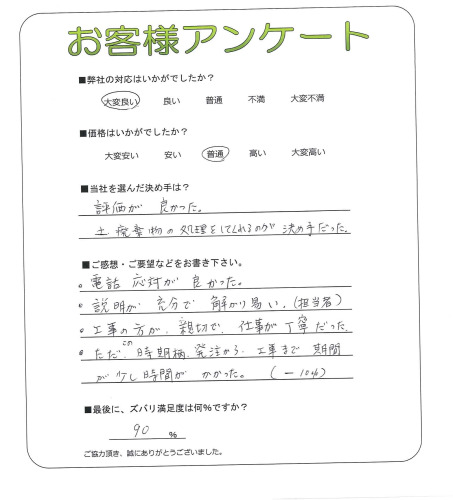 お客様アンケート
■弊社の対応はいかがでしたか?
大変良い 良い 普通 不満 大変不満
■価格はいかがでしたか?
大変安い 安い 普通 高い 大変高い
■当社を選んだ決め手は?
評価が 良かった。
土、廃棄物の処理をしてくれるのが 決め手だった。
■ご感想・ご要望などをお書き下さい。
電話 応対が 良かった。
説明が 充分で 解かり易い。(担当者)
工事の方が、親切で、仕事が丁寧だった。
ただ、この時期柄、発注から、工事まで 期間
が少し時間が かかった。 (-10%)
■最後に、ズバリ満足度は何%ですか?
90 %
ご協力頂き、誠にありがとうございました。